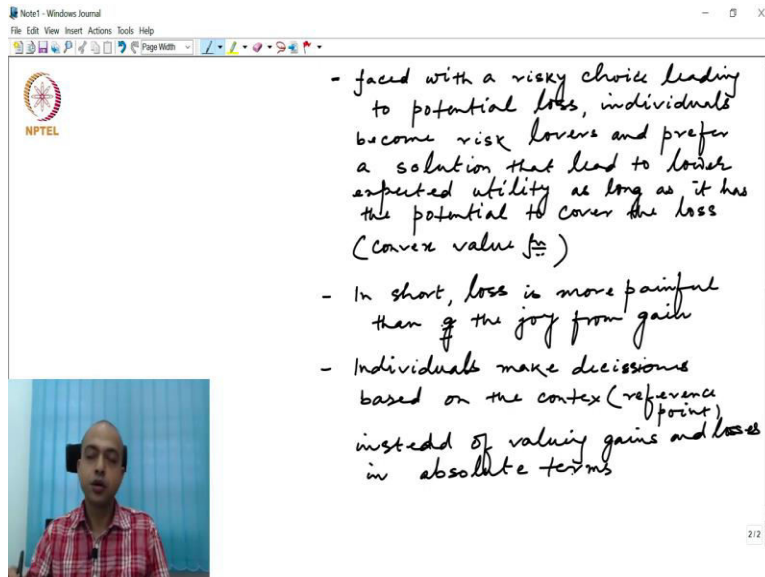 Note1 - Windows Journal
File Edit View Insert Actions Tools Help
Page Width
NPTEL
- faced with a risky choice leading
to potential loss, individuals
become risk lovers and prefer
a solution that lead to lower
expected utility as long as it has
the potential to cover the loss
(convex value fn)
- In short, loss is more painful
than the joy from gain
- Individuals make decissions
based on the contex (reference
point)
instedd of valuing gains and losses
in absolute terms
2/2